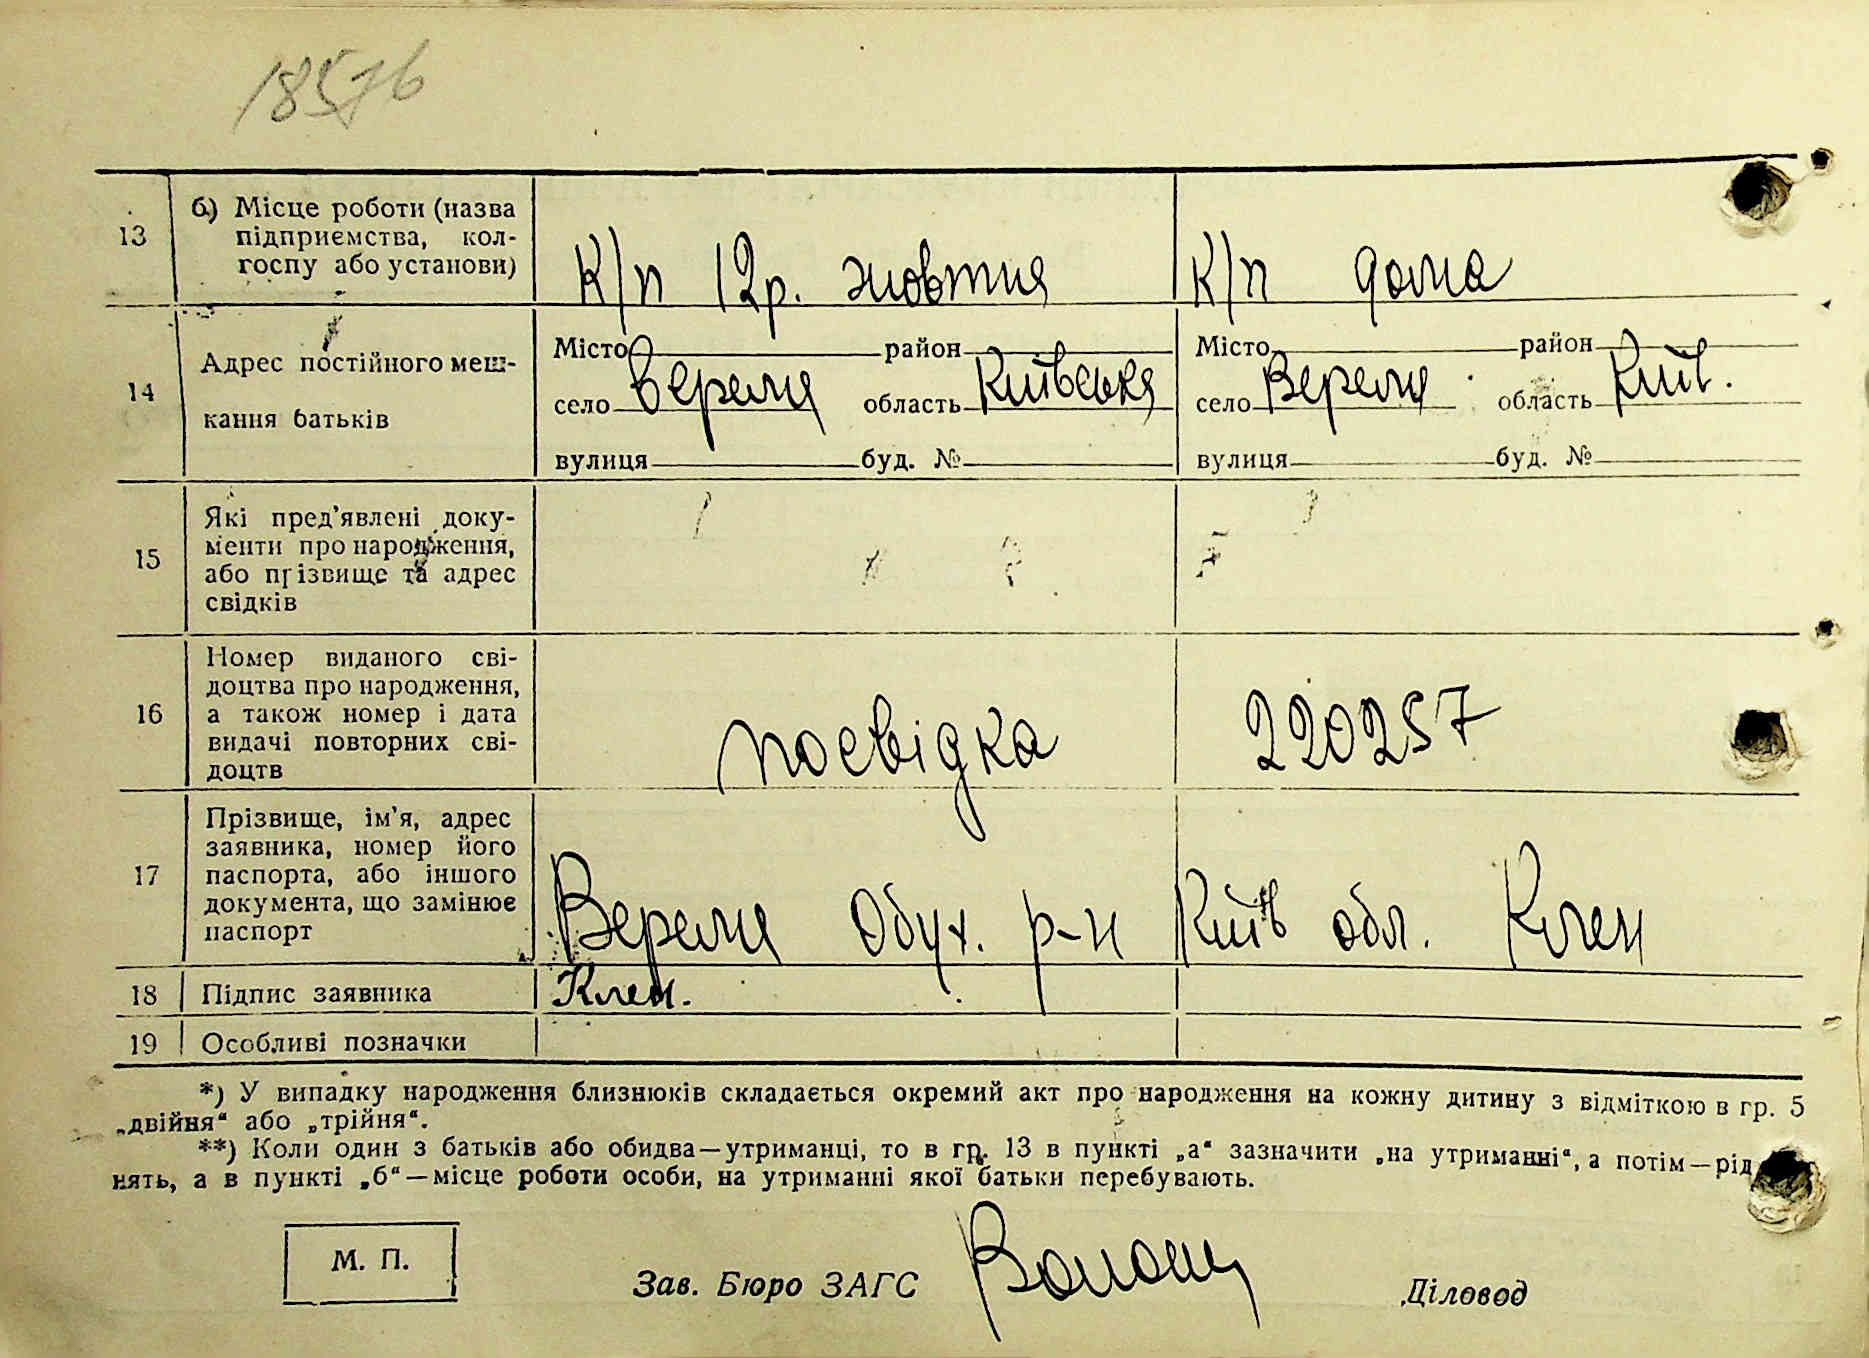 18576
13
б) Місце роботи (назва
підприємства, кол-
госпу або установи)
К/п 12 р. жовтня
К/п дома
14
Адрес постійного меш-
кання батьків
Місто район
село Веремя область Київська
вулиця буд. №
Місто район
село Веремя область Київ.
вулиця буд. №
15
Які пред'явлені доку-
менти про народження,
або прізвище та адрес
свідків
16
Номер виданого сві-
доцтва про народження,
а також номер і дата
видачі повторних сві-
доцтв
посвідка 220257
17
Прізвище, ім'я, адрес
заявника, номер його
паспорта, або іншого
документа, що замінює
паспорт
Веремя Обух. р-н Київ обл. Клен
18 Підпис заявника Клен.
19 Особливі позначки
*) У випадку народження близнюків складається окремий акт про народження на кожну дитину з відміткою в гр. 5
„двійня“ або „трійня“.
**) Коли один з батьків або обидва—утриманці, то в гр. 13 в пункті „а“ зазначити „на утриманні“, а потім—рід
нять, а в пункті „б“—місце роботи особи, на утриманні якої батьки перебувають.
М. П.
Зав. Бюро ЗАГС
Діловод